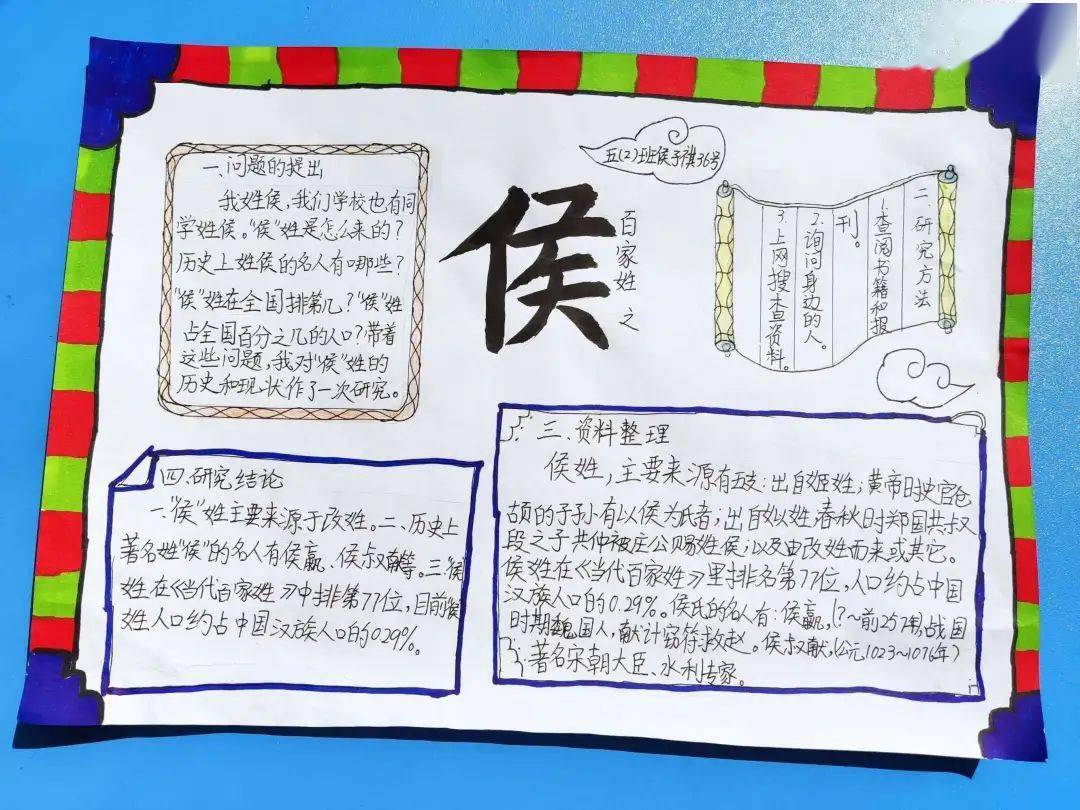 五(2)班侯子祺36号
侯
百家姓之
一、问题的提出
我姓侯，我们学校也有同
学姓侯。“侯”姓是怎么来的？
历史上姓侯的名人有哪些？
“侯”姓在全国排第几？“侯”姓
占全国百分之几的人口？带着
这些问题，我对“侯”姓的
历史和现状作了一次研究。
二、研究方法
1.查阅书籍和报
刊。
2.询问身边的人。
3.上网搜查资料。
三、资料整理
侯姓，主要来源有五支：出自姬姓；黄帝时史官仓
颉的子孙有以侯为氏者；出自姒姓，春秋时郑国共叔
段之子共仲被庄公赐姓侯；以及由改姓而来或其它。
侯姓在《当代百家姓》里排名第77位，人口约占中国
汉族人口的0.29%。侯氏的名人有：侯嬴，(？～前257年)，战国
时期魏国人，献计窃符救赵。侯叔献，(公元1023～1076年)
著名宋朝大臣、水利专家。
四、研究结论
一、“侯”姓主要来源于改姓。二、历史上
著名姓“侯”的名人有侯嬴、侯叔献等。三、“侯”
姓在《当代百家姓》中排第77位，目前“侯”
姓人口约占中国汉族人口的0.29%。